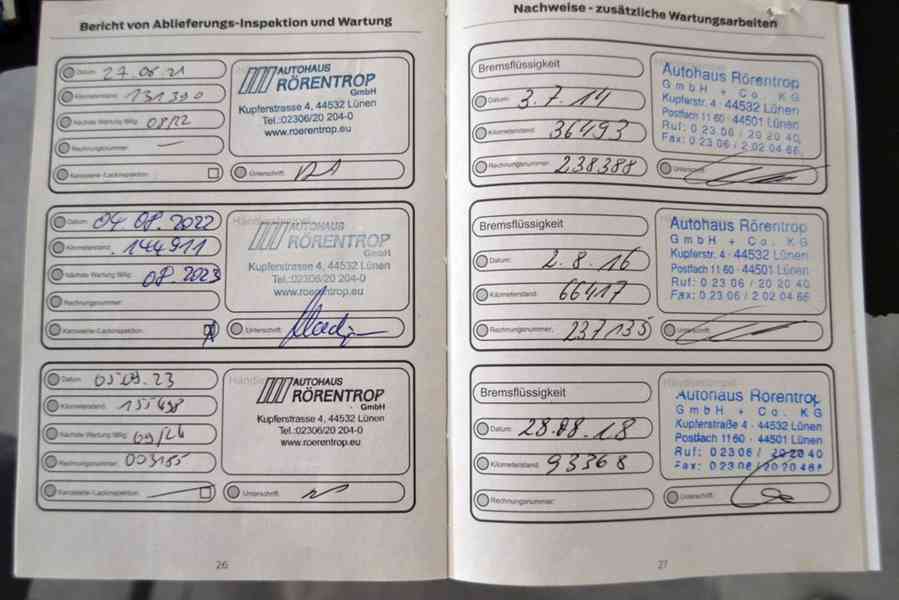 Bericht von Ablieferungs-Inspektion und Wartung
Datum: 27.08.21
Kilometerstand: 131390
Nächste Wartung fällig: 08/22
Rechnungsnummer: —
Karosserie-/Lackinspektion:
AUTOHAUS
RÖRENTROP
GmbH
Kupferstrasse 4, 44532 Lünen
Tel.:02306/20 204-0
www.roerentrop.eu
Unterschrift:
Datum: 04.08.2022
Kilometerstand: 144911
Nächste Wartung fällig: 08.2023
Rechnungsnummer:
Karosserie-/Lackinspektion:
AUTOHAUS
RÖRENTROP
GmbH
Kupferstrasse 4, 44532 Lünen
Tel.:02306/20 204-0
www.roerentrop.eu
Unterschrift:
Datum: 05.09.23
Kilometerstand: 155498
Nächste Wartung fällig: 09/24
Rechnungsnummer: 003185
Karosserie-/Lackinspektion:
AUTOHAUS
RÖRENTROP
GmbH
Kupferstrasse 4, 44532 Lünen
Tel.:02306/20 204-0
www.roerentrop.eu
Unterschrift:
26
Nachweise - zusätzliche Wartungsarbeiten
Bremsflüssigkeit
Datum: 3.7.14
Kilometerstand: 36493
Rechnungsnummer: 238388
Autohaus Rörentrop
GmbH + Co. KG
Kupferstr. 4 · 44532 Lünen
Postfach 11 60 · 44501 Lünen
Ruf: 0 23 06 / 20 20 40
Fax: 0 23 06 / 2 02 04 66
Unterschrift:
Bremsflüssigkeit
Datum: 2.8.16
Kilometerstand: 66417
Rechnungsnummer: 237135
Autohaus Rörentrop
GmbH + Co. KG
Kupferstr. 4 · 44532 Lünen
Postfach 11 60 · 44501 Lünen
Ruf: 0 23 06 / 20 20 40
Fax: 0 23 06 / 2 02 04 66
Unterschrift:
Bremsflüssigkeit
Datum: 28.08.18
Kilometerstand: 93368
Rechnungsnummer:
Autohaus Rörentrop
GmbH + Co. KG
Kupferstraße 4 · 44532 Lünen
Postfach 11 60 · 44501 Lünen
Ruf: 0 23 06 / 20 20 40
Fax: 0 23 06 / 20 20 466
Unterschrift:
27